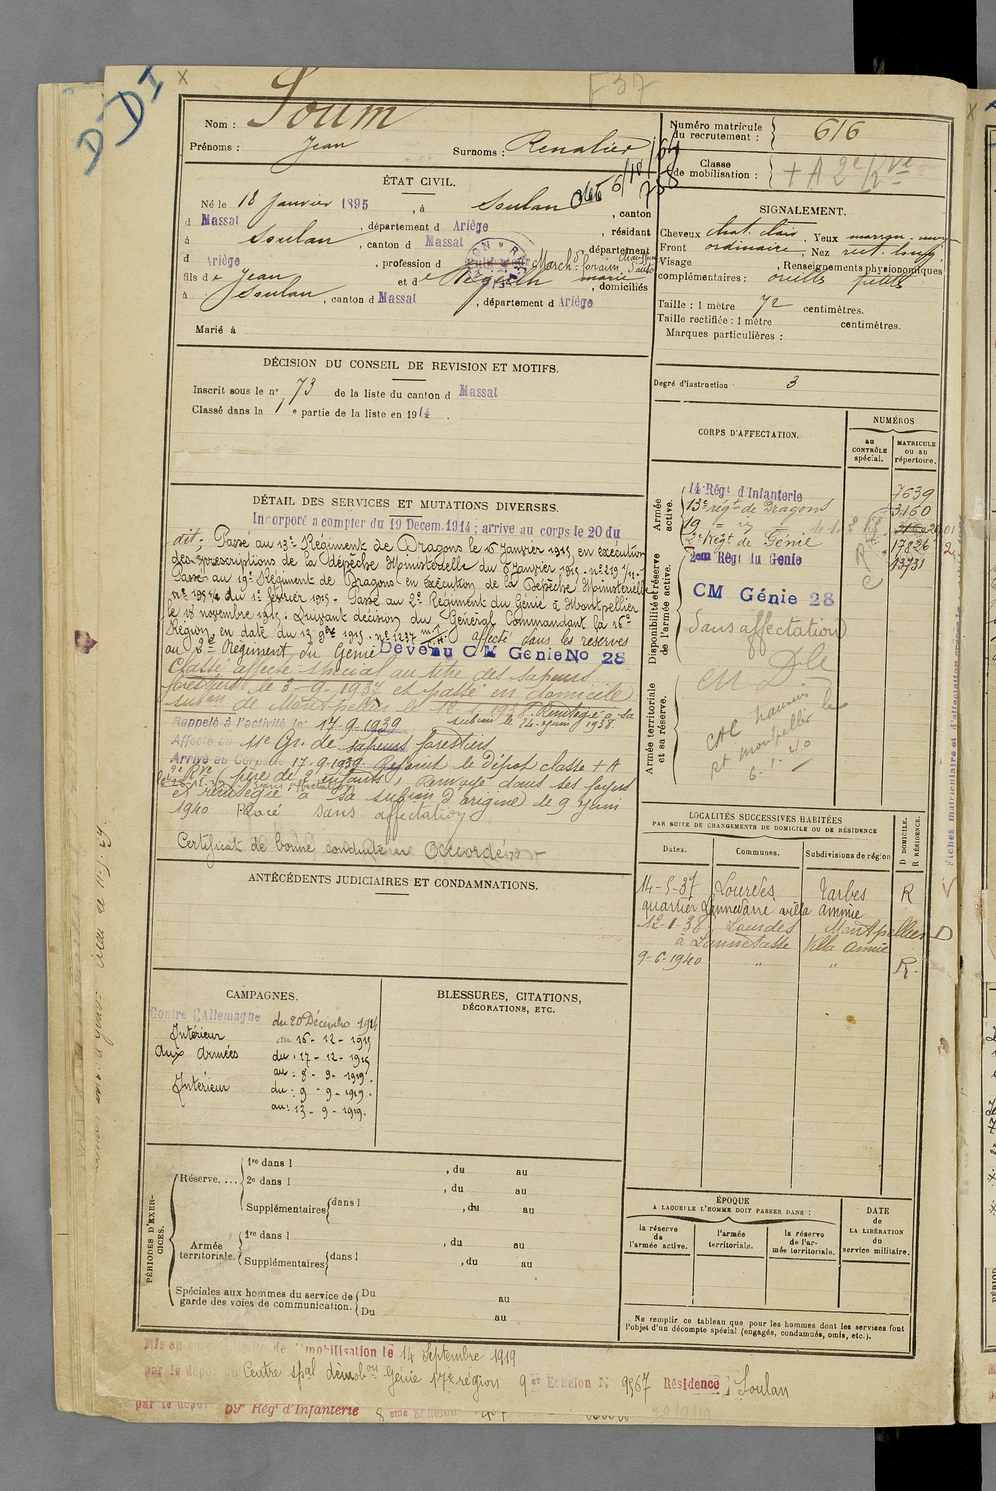 DDI
F 37
Nom : Soum
Prénoms : Jean Surnoms : Renatier
Numéro matricule du recrutement : 616
Classe de mobilisation : + A 2e Rve
ÉTAT CIVIL.
Né le 18 Janvier 1895, à Soulan, canton
d Massat, département d Ariège, résidant
à Soulan, canton d Massat, département
d Ariège, profession d March. forain
fils de Jean et de marie, domiciliés
à Soulan, canton d Massat, département d Ariège
Marié à
SIGNALEMENT.
Cheveux chat. clair, Yeux marron
Front ordinaire, Nez rect. long.
Visage, Renseignements physionomiques
complémentaires : oreilles petites
Taille : 1 mètre 72 centimètres.
Taille rectifiée : 1 mètre centimètres.
Marques particulières :
Degré d'instruction 3
DÉCISION DU CONSEIL DE REVISION ET MOTIFS.
Inscrit sous le n° 73 de la liste du canton d Massat
Classé dans la 1e partie de la liste en 1914.
CORPS D'AFFECTATION.
NUMÉROS
au CONTRÔLE spécial.
MATRICULE ou au répertoire.
Armée active.
14 Régt d'Infanterie 7639
13e régt de Dragons 3160
19 " " "
2e Régt de Génie 17826
Disponibilité et réserve de l'armée active.
2em Régt du Genie 13731
CM Génie 28
Sans affectation
Armée territoriale et sa réserve.
en Dle
CAL
Rt montpellier le
6-1-40
DÉTAIL DES SERVICES ET MUTATIONS DIVERSES.
Incorporé a compter du 19 Decem. 1914 ; arrive au corps le 20 du
dit ; Passe au 13e Régiment de Dragons le 15 Janvier 1915, en exécution
des prescriptions de la Dépêche Ministérielle du 8 Janvier 1915 - n° 219 1/11 -
Passe au 19e Régiment de Dragons en exécution de la Dépêche Ministérielle
n° 1954 du 1er février 1915 - Passé au 2e Régiment du Génie à Montpellier
le 18 novembre 1915. Suivant décision du Général Commandant la 16e
Région en date du 13 9bre 1915 - n° 1237 affecté dans les réserves
au 2e Régiment du Génie Devenu CM Genie No 28
Classé affecté spécial au titre des sapeurs
forestiers le 3-9-1937 et passé en domicile
subon de Montpellier le 12-1-1938. Réintégré à sa
subion le 24-1938.
Rappelé à l'activité le 17-9-1939
Affecté au 11e Gr. de sapeurs forestiers
Arrivé au Corps le 17-9-1939. Rejoint le dépôt classe + A
2e Rve (père de 2 enfants) Renvoyé dans ses foyers
et réintégré à sa subion d'origine le 9 Juin
1940 Placé sans affectation
Certificat de bonne conduite Accordé
ANTÉCÉDENTS JUDICIAIRES ET CONDAMNATIONS.
LOCALITÉS SUCCESSIVES HABITÉES
PAR SUITE DE CHANGEMENTS DE DOMICILE OU DE RÉSIDENCE
Dates. Communes. Subdivisions de région
D DOMICILE. R RÉSIDENCE.
14-5-37 Lourdes Tarbes R
quartier Lannedarré villa Annie
12-1-38 Lourdes Montpellier D
à Villa Annie
9-6-1940 " " R.
CAMPAGNES.
Contre l'Allemagne du 20 Décembre 1914
Intérieur au 16-12-1915
Aux Armées du : 17-12-1915
au : 8-9-1919.
Intérieur du : 9-9-1919.
au : 13-9-1919.
BLESSURES, CITATIONS,
DÉCORATIONS, ETC.
PÉRIODES D'EXERCICES.
Réserve.... 1re dans l , du au
2e dans l , du au
Supplémentaires dans l , du au
Armée territoriale. 1re dans l , du au
Supplémentaires dans l , du au
Spéciales aux hommes du service de garde des voies de communication. Du au
Du au
ÉPOQUE
A LAQUELLE L'HOMME DOIT PASSER DANS :
la réserve de l'armée active.
l'armée territoriale.
la réserve de l'armée territoriale.
DATE de LA LIBÉRATION du service militaire.
Ne remplir ce tableau que pour les hommes dont les services font
l'objet d'un décompte spécial (engagés, condamnés, omis, etc.).
Mis en congé illimité de démobilisation le 14 Septembre 1919
par le dépôt Centre spal démobon Génie 17e région 9e Echelon N° 9567 Résidence Soulan
par le dépôt 59e Régt d'Infanterie 8eme Echelon